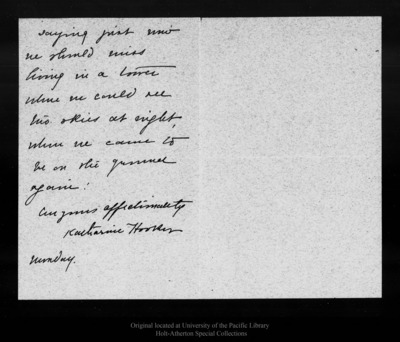 saying just now
we should miss
living in a tower
when we could see
the skies at night,
when we came to
be on the ground
again!
affectionately
Katharine Hooker
Sunday.
Original located at University of the Pacific Library
Holt-Atherton Special Collections